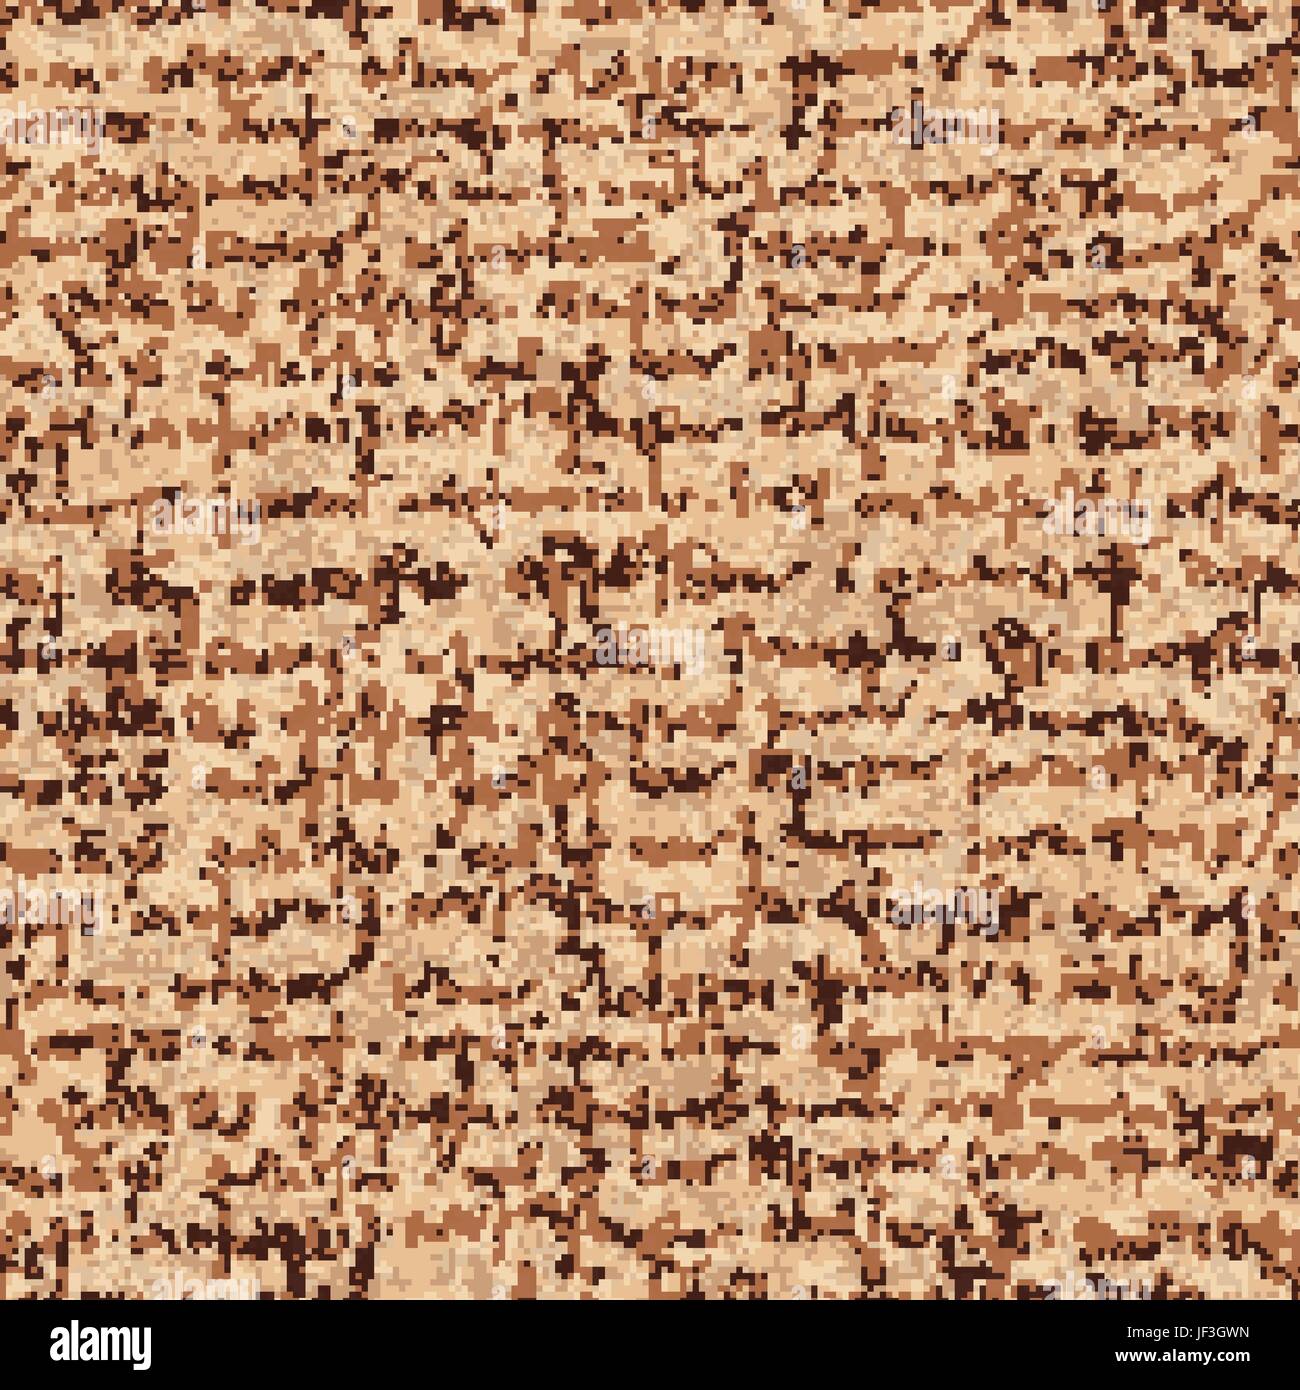 alamy
alamy
alamy
alamy
alamy
alamy
alamy
alamy
Image ID: JF3GWN
www.alamy.com